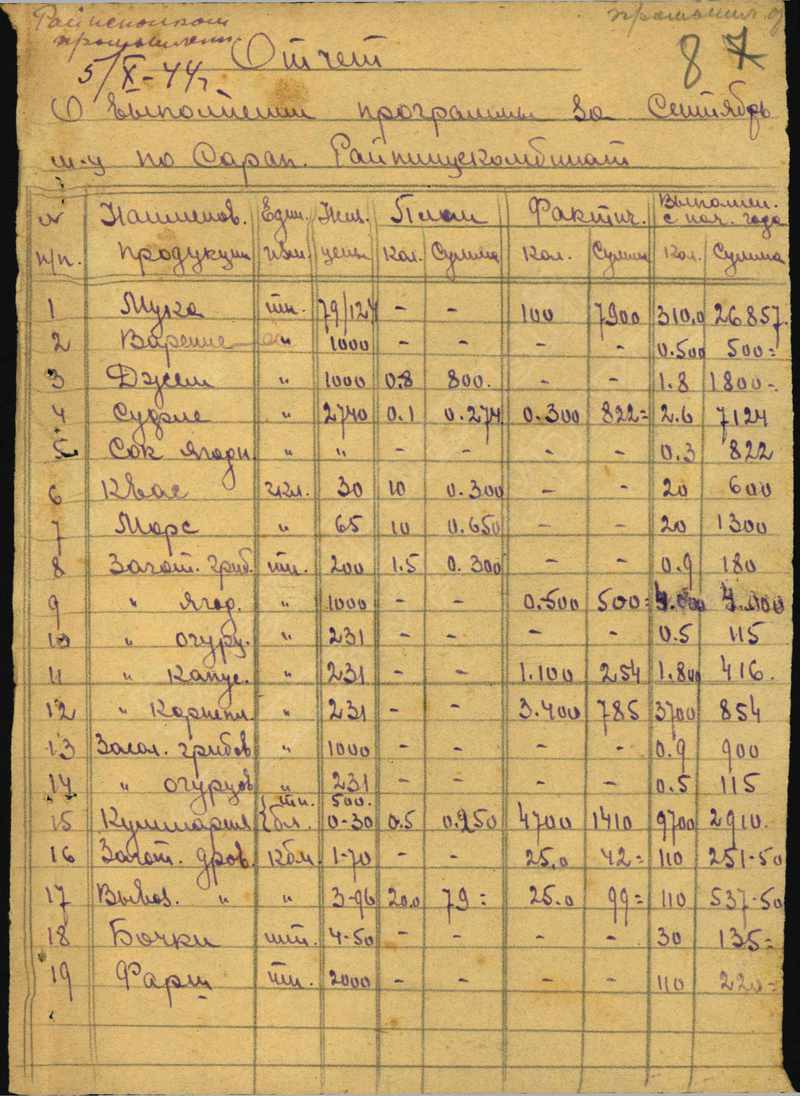 Райисполком
промышлен.
5/X-44г.
87
Отчет
О выполнении программы за Сентябрь
м-ц по Сарап. Райпищекомбинат
№ Наименов. Един. Неиз. План Фактич. Выполнен. с нач. года
п/п. продукции изм. цены Кол. Сумма Кол. Сумма Кол. Сумма
1 Мука тн. 79/127 - - 100 7900 310,0 26857.
2 Варение " 1000 - - - - 0.500 500=
3 Джем " 1000 0.8 800. - - 1.8 1800=
4 Суфле " 2740 0.1 0.274 0.300 822= 2.6 7124
5 Сок ягодн. " " - - - - 0.3 822
6 Квас гкл. 30 10 0.300 - - 20 600
7 Морс " 65 10 0.650 - - 20 1300
8 Загот. гриб. тн. 200 1.5 0.300 - - 0.9 180
9 " ягод. " 1000 - - 0.500 500= 4.000 4.000
10 " огурц. " 231 - - - - 0.5 115
11 " капус. " 231 - - 1.100 254 1.800 416.
12 " Картоп. " 231 - - 3.400 785 3700 854
13 Засол. грибов " 1000 - - - - 0.9 900
14 " огурцов " 231 - - - - 0.5 115
15 Кулинария тн. бл. 500. 0-30 0.5 0.250 4700 1410 9700 2910.
16 Загот. дров. Кбм. 1-70 - - 25.0 42= 110 251-50
17 Вывоз. " " 3-96 20.0 79= 25.0 99= 110 537-50
18 Бочки шт. 4-50 - - - - 30 135=
19 Фарш тн. 2000 - - - - 110 220=